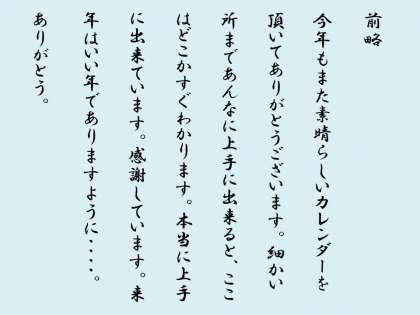 前略
今年もまた素晴らしいカレンダーを
頂いてありがとうございます。細かい
所まであんなに上手に出来ると、ここ
はどこかすぐわかります。本当に上手
に出来ています。感謝しています。来
年はいい年でありますように・・・・。
ありがとう。